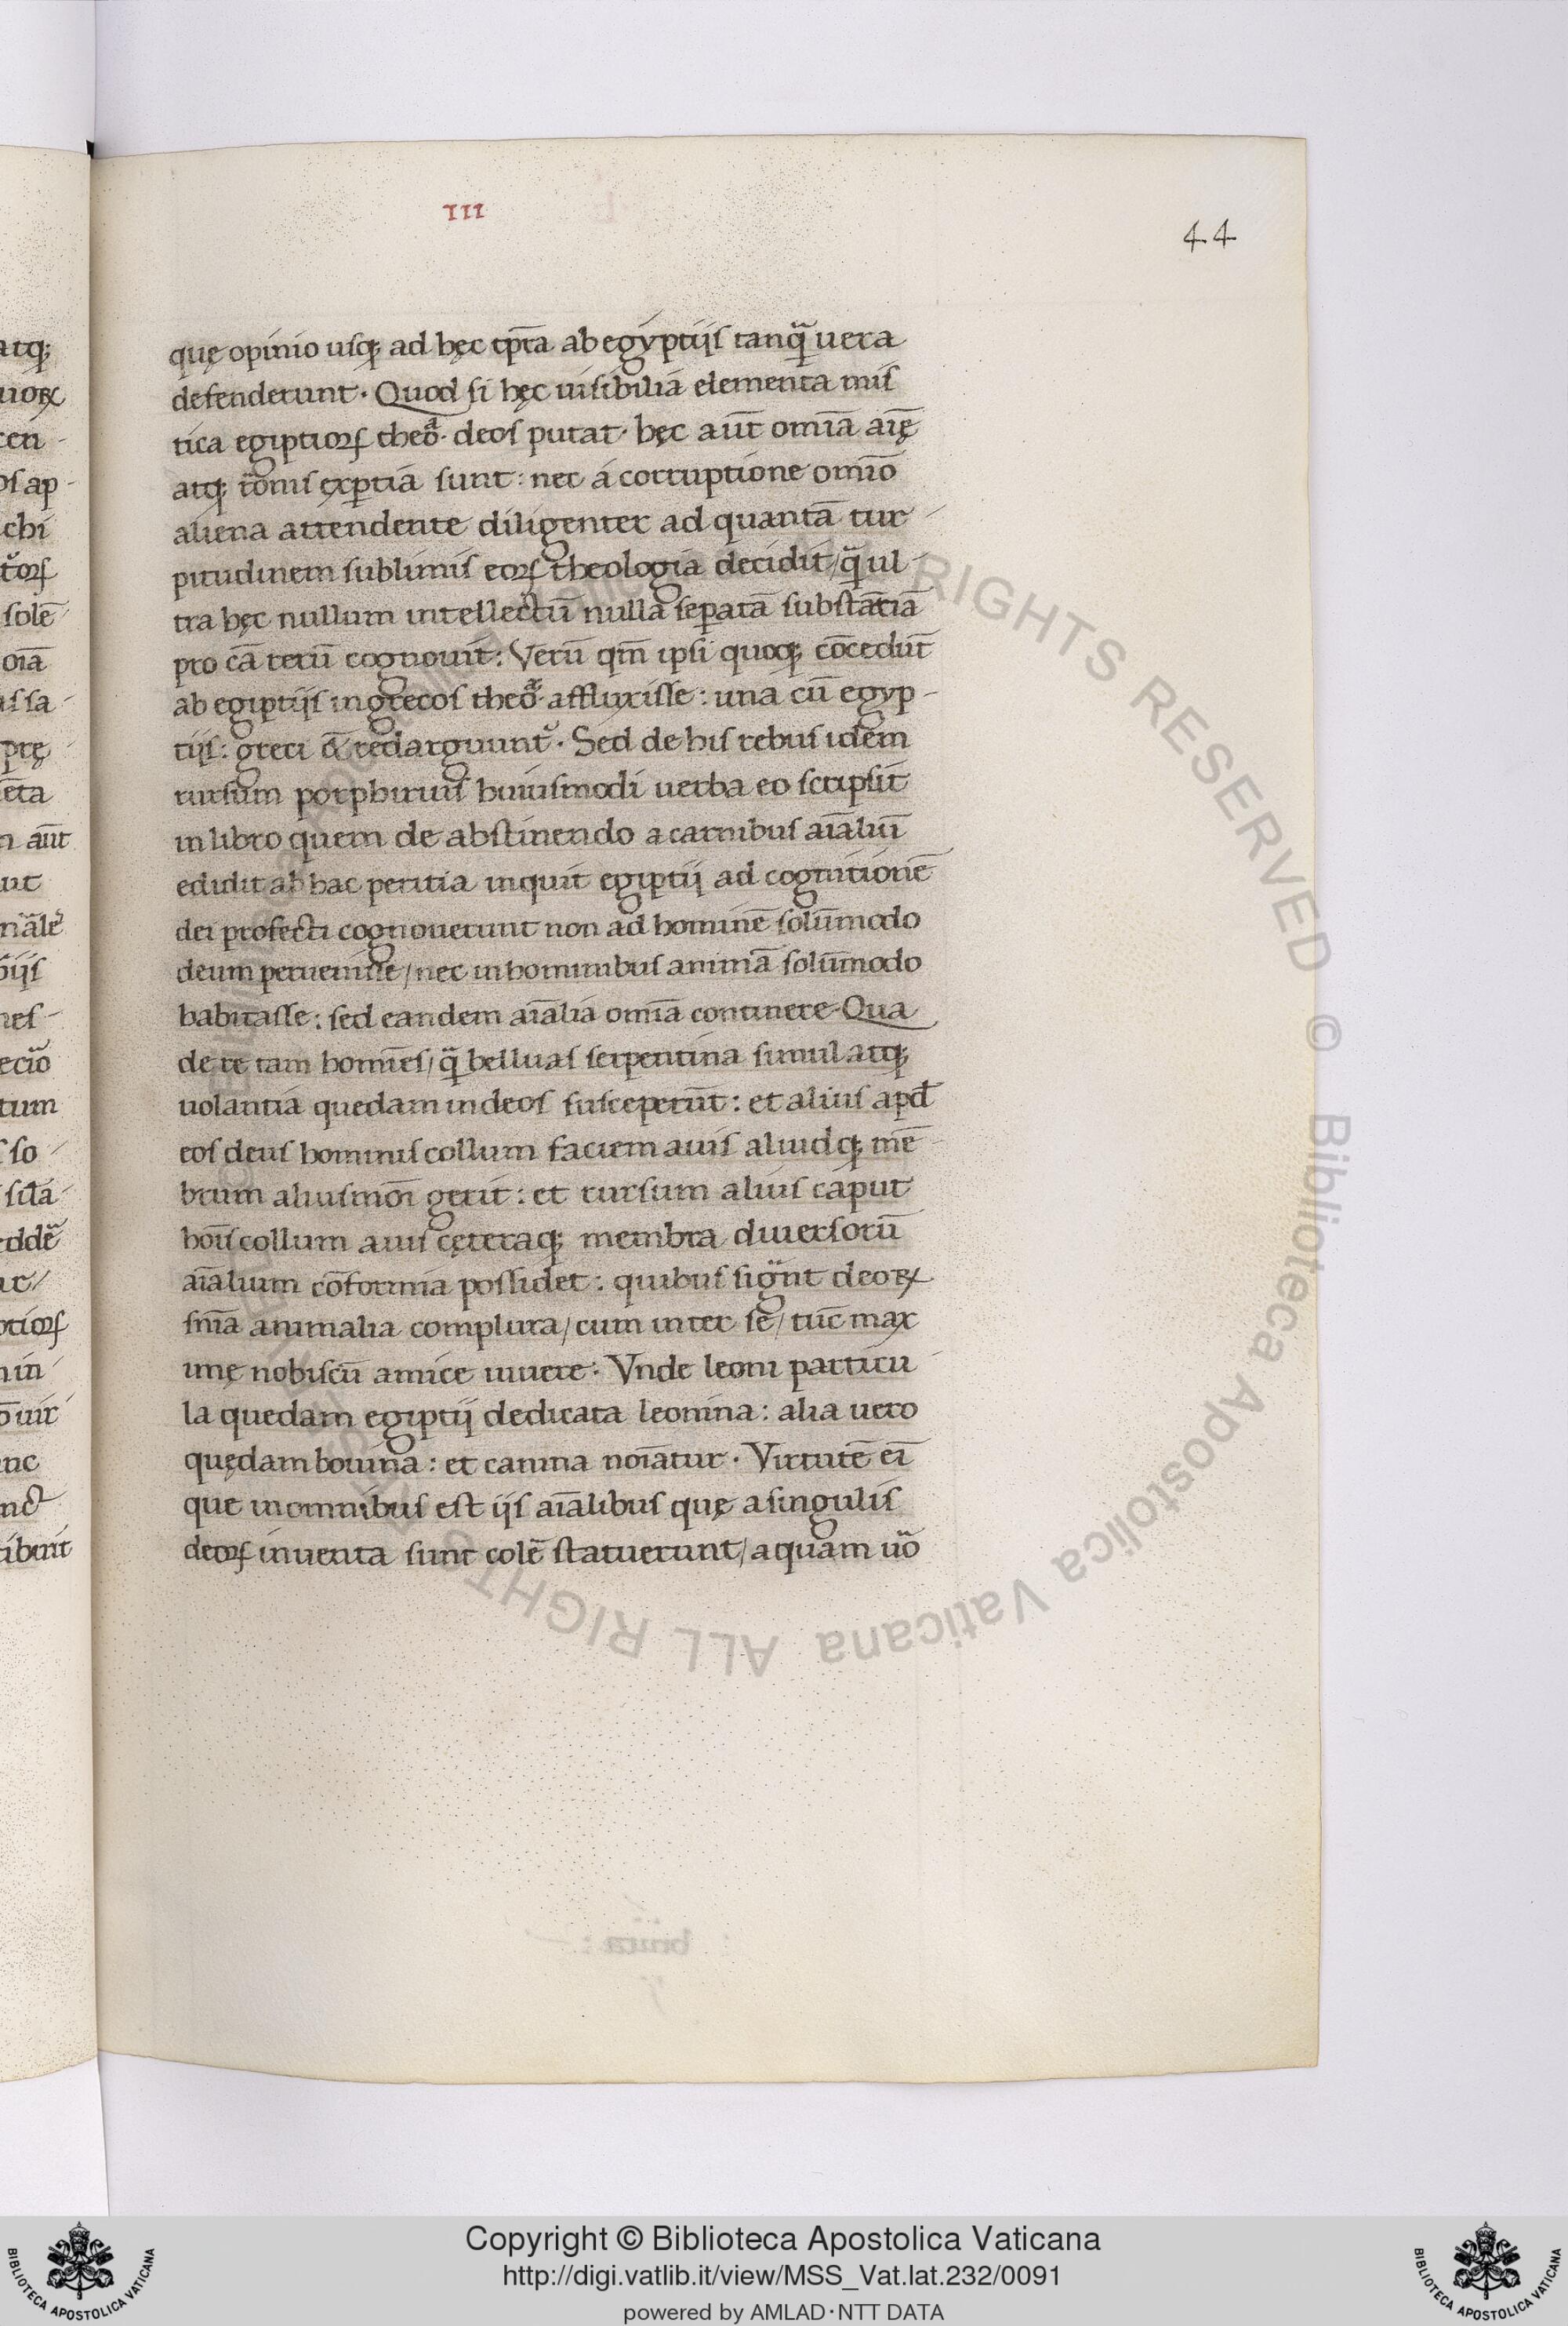 III
44
quę opinio usq; ad hęc tp̄ra ab egyptijs tanq̃ uera
defenderunt. Quod si hęc uisibilia elementa mis
tica egiptioꝝ theo.ᵃ deos putat. hęc aūt omīa aīę
atq; rōnis exꝑtia sunt: nec a corruptione omīo
aliena attendente diligenter ad quantā tur-
pitudinem sublimis eoꝝ theologia decidit/ q̃ ul-
tra hęc nullum intellectū nullā seꝑatā substātiā
pro cā rerū cognouit: Verū qm̄ ipsi quoq; cōcedūt
ab egiptijs in grecos theoᵃ. affluxisse: una cū egyp-
tijs: greci &̄ redarguunt᷑. Sed de his rebus idem
rursum porphirius huiusmodi uerba eo scripsit
in libro quem de abstinendo a carnibus aīaliū
edidit ab hac peritia inquit egiptij ad cognitionē
dei profecti cognouerunt non ad hominē solūmodo
deum peruenisse/ nec in hominibus animā solūmodo
habitasse: sed eandem aīalia omīa continere. Qua
de re tam homīes/ q̃ belluas serpentina simul atq;
uolantia quedam in deos susceperūt: et alius apđ
eos deus hominis collum faciem auis aliudq; mē-
brum aliusmōi gerit: et rursum alius caput
hoīs collum auis cęteraq; membra diuersorū
aīalium cōformia possidet: quibus sigñt deoꝝ
snīa animalia complura/ cum inter se/ tūc max
imę nobiscū amice uiuere: Vnde leoni particu
la quedam egiptij dedicata leonina: alia uero
quędam bouina: et canina noīatur. Virtutē eī
que in omnibus est ijs aīalibus quę a singulis
deoꝝ inuenta sunt colē statuerunt/ aquam uo᷑
ALL RIGHTS RESERVED © Biblioteca Apostolica Vaticana
Copyright © Biblioteca Apostolica Vaticana
http://digi.vatlib.it/view/MSS_Vat.lat.232/0091
powered by AMLAD·NTT DATA
BIBLIOTECA APOSTOLICA VATICANA
BIBLIOTECA APOSTOLICA VATICANA